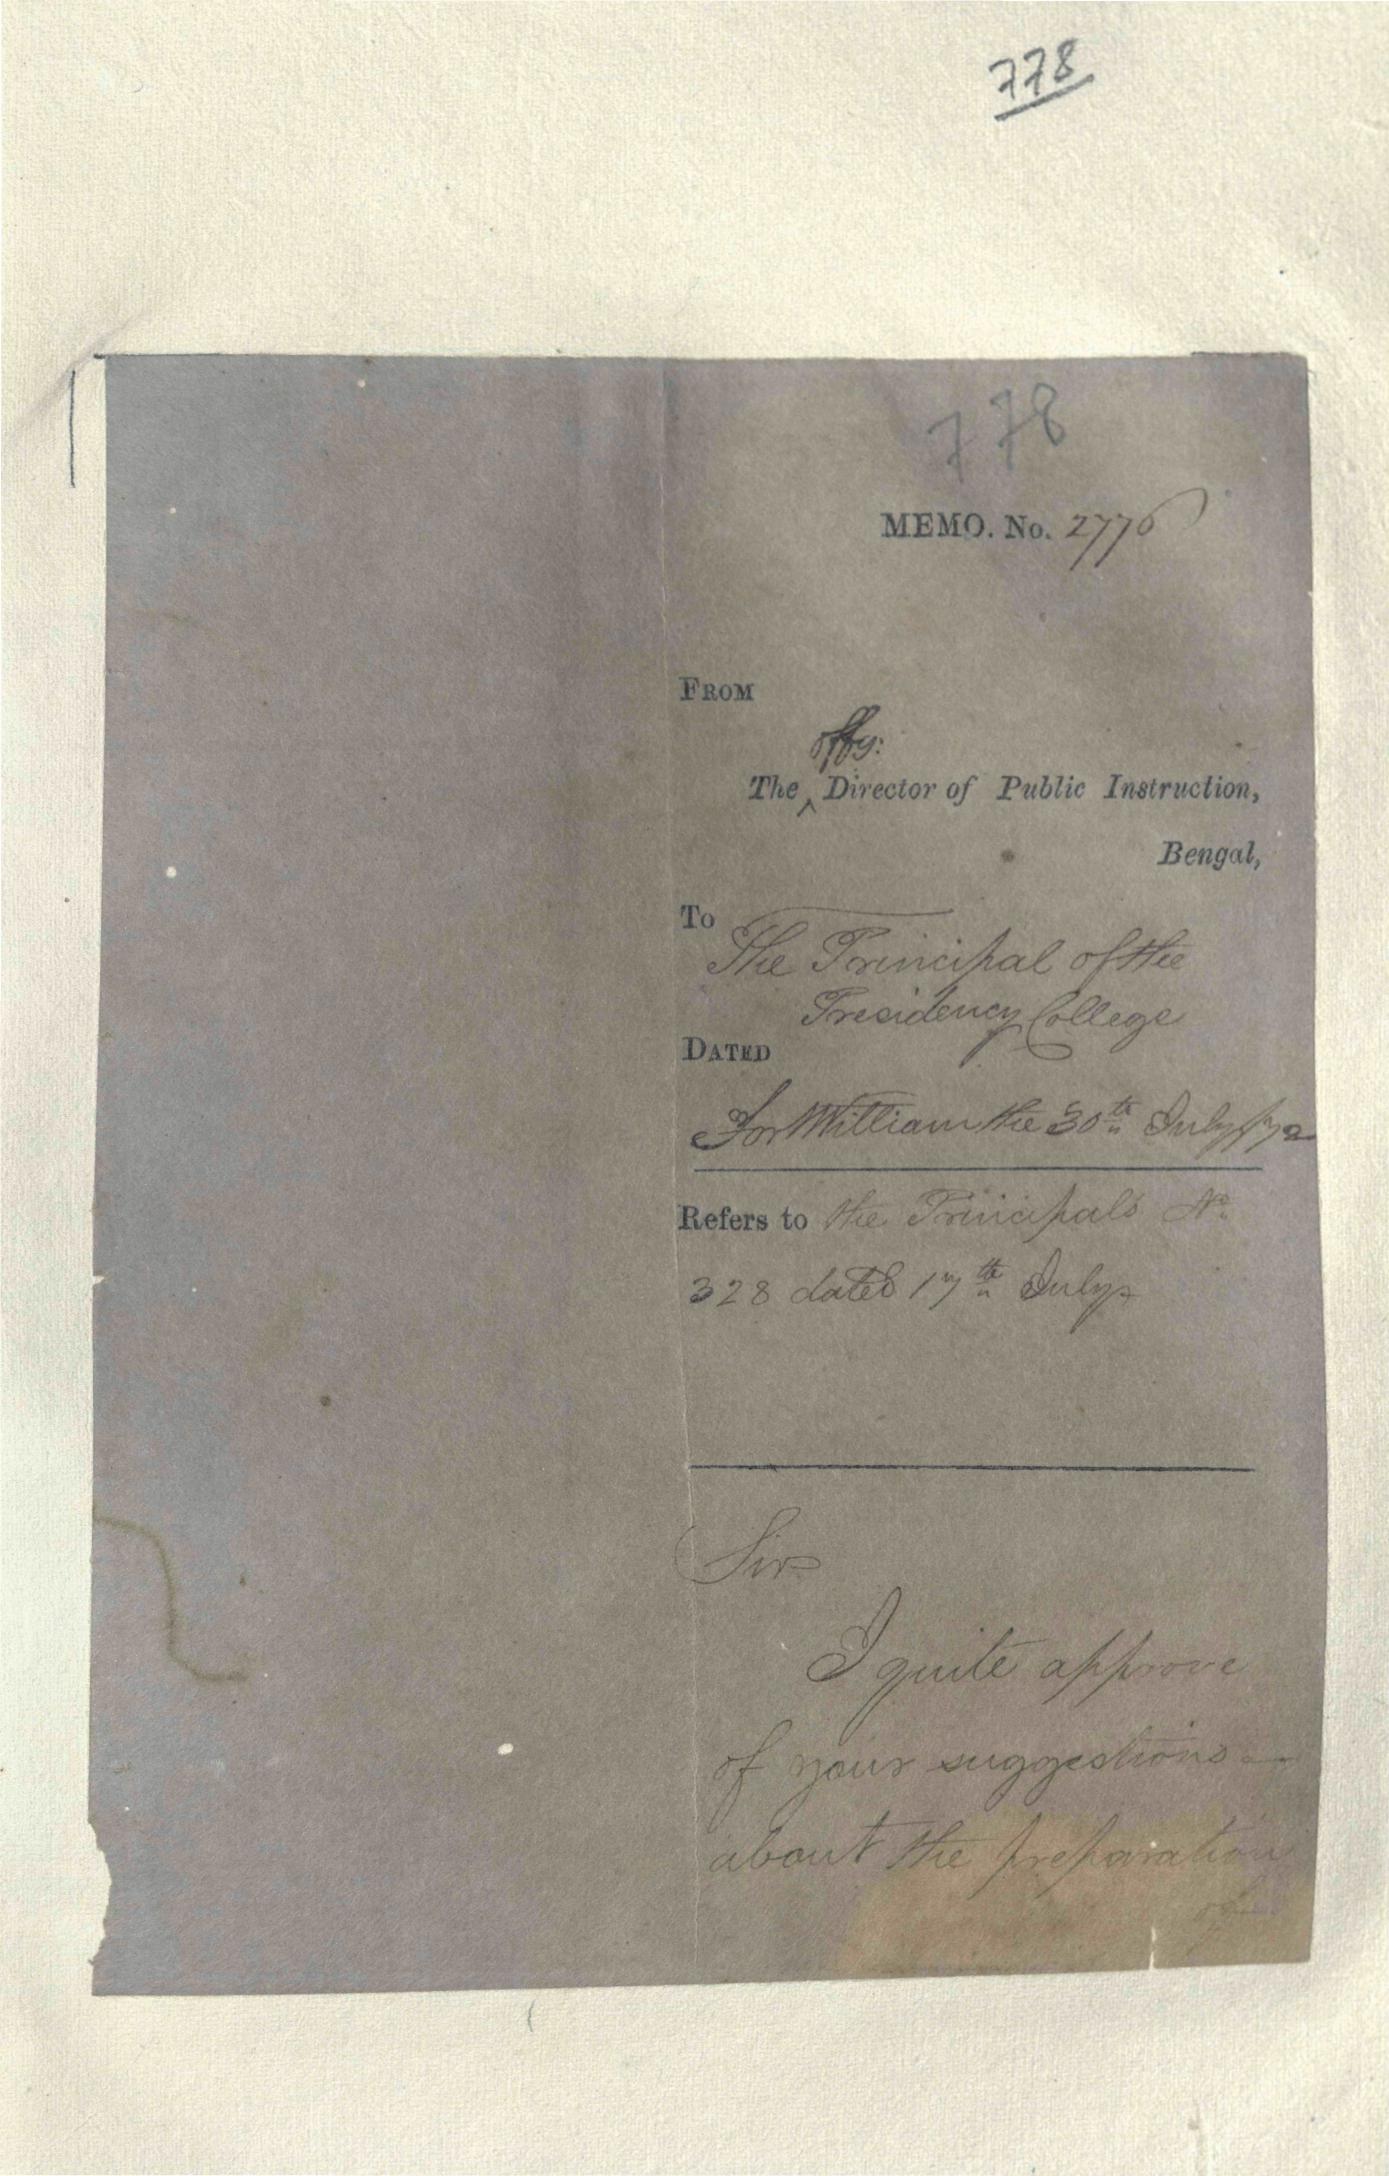 778
778
MEMO. No. 2776
FROM
offg:
The ^ Director of Public Instruction,
Bengal,
To
The Principal of the
Presidency College
DATED
Fort William the 30th July /72
Refers to the Principals No
328 dated 17th July
Sir
I quite approve
of your suggestions
about the preparation
of